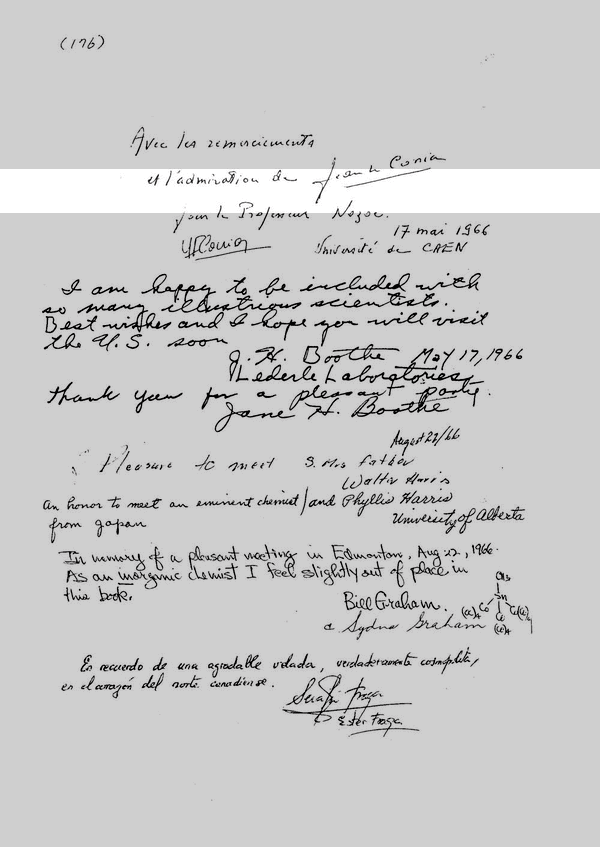 (176)
Avec les remerciements
et l'admiration de Jean M. Conia
pour le Professeur Nozoe.
17 mai 1966
JM Conia Université de CAEN
I am happy to be included with
so many illustrious scientists.
Best wishes and I hope you will visit
the U.S. soon
J. H. Boothe May 17, 1966
Lederle Laboratories
thank you for a pleasant party.
Jane H. Boothe
August 22/66
Pleasure to meet S. Mrs father
Walter Harris
An honor to meet an eminent chemist / and Phyllis Harris
from Japan University of Alberta
In memory of a pleasant meeting in Edmonton, Aug 22, 1966.
As an inorganic chemist I feel slightly out of place in
this book.
Bill Graham.
& Sydna Graham
Sn
En recuerdo de una agradable velada, verdaderamente cosmopolita,
en el corazón del norte canadiense.
Serafin Fraga
Ester Fraga